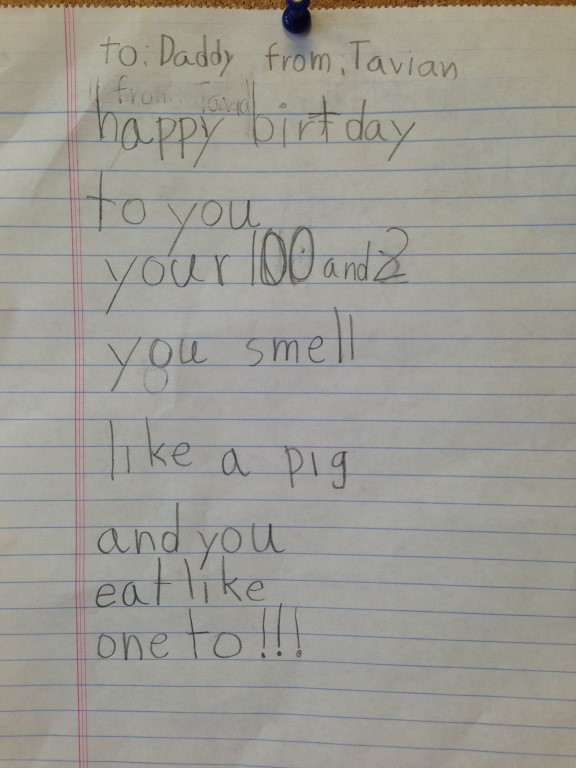 to: Daddy from: Tavian
happy birtday
to you
your 100 and 2
you smell
like a pig
and you
eat like
one to!!!